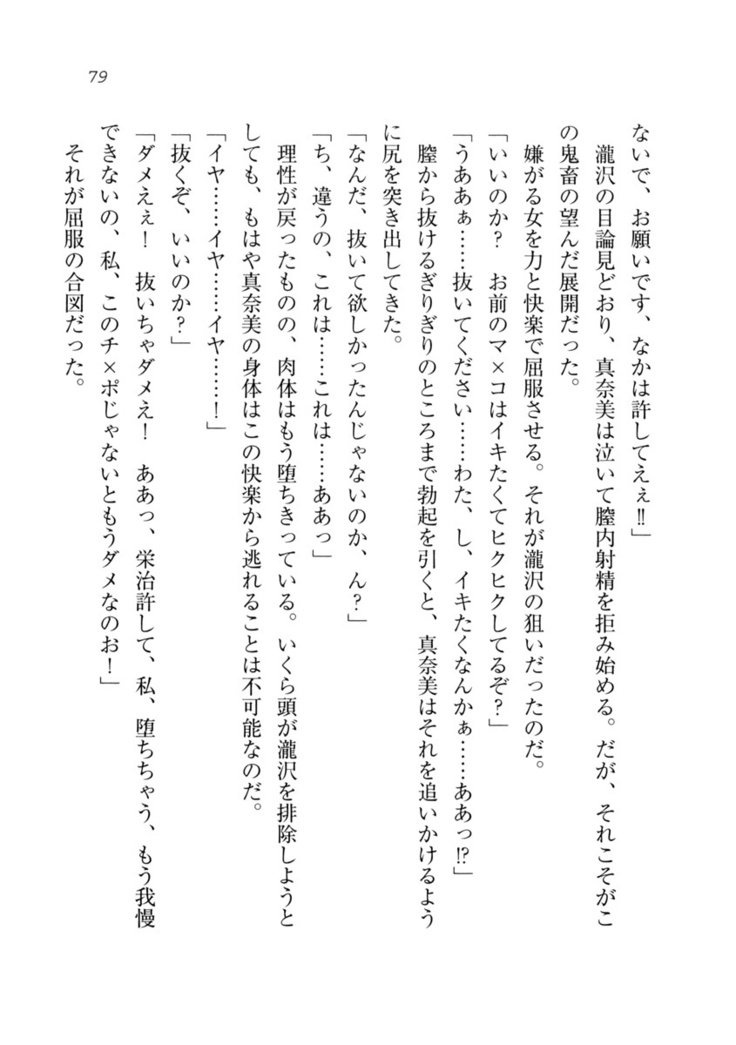 79
ないで、お願いです、なかは許してえぇ!!」
瀧沢の目論見どおり、真奈美は泣いて膣内射精を拒み始める。だが、それこそがこ
の鬼畜の望んだ展開だった。
嫌がる女を力と快楽で屈服させる。それが瀧沢の狙いだったのだ。
「いいのか?　お前のマ×コはイキたくてヒクヒクしてるぞ?」
「うああぁ……抜いてください……わた、し、イキたくなんかぁ……ああっ!?」
膣から抜けるぎりぎりのところまで勃起を引くと、真奈美はそれを追いかけるよう
に尻を突き出してきた。
「なんだ、抜いて欲しかったんじゃないのか、ん?」
「ち、違うの、これは……これは……ああっ」
理性が戻ったものの、肉体はもう堕ちきっている。いくら頭が瀧沢を排除しようと
しても、もはや真奈美の身体はこの快楽から逃れることは不可能なのだ。
「イヤ……イヤ……イヤ……!」
「抜くぞ、いいのか?」
「ダメえぇ!　抜いちゃダメえ!　ああっ、栄治許して、私、堕ちちゃう、もう我慢
できないの、私、このチ×ポじゃないともうダメなのお!」
それが屈服の合図だった。